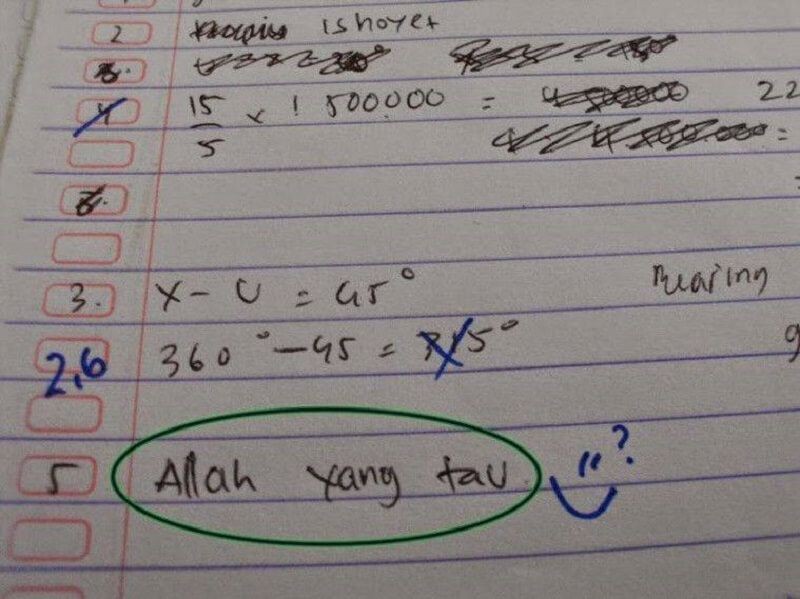 2 ishoyet
4 15/5 x 1 500.000 = 22
=
3. x - U = 45° Bearing
2,6 360° - 45 = 315° 9
5 Allah yang tau. "?